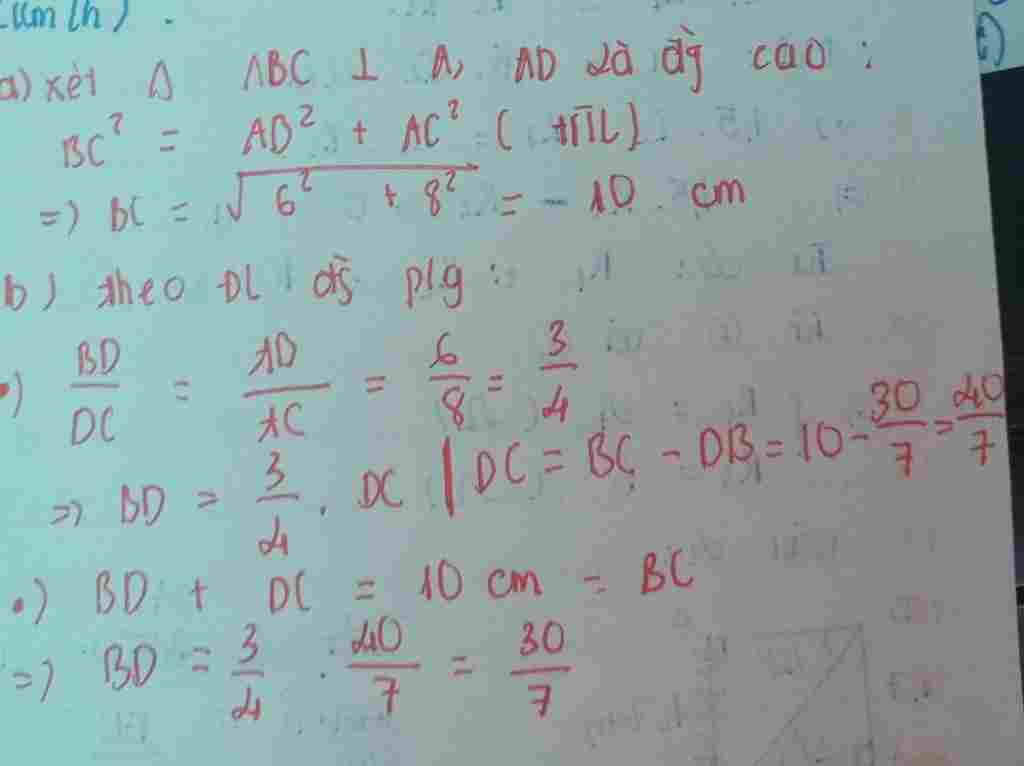 a) xét Δ ABC ⊥ A, AD là đg cao :
BC² = AD² + AC² ( +ПL)
=) BC = √6² + 8² = - 10 cm
b) theo DL đg plg :
•) BD/DC = AD/AC = 6/8 = 3/4
=> BD = 3/4 . DC | DC = BC - DB = 10 - 30/7 = 40/7
•) BD + DC = 10 cm = BC
=) BD = 3/4 . 40/7 = 30/7